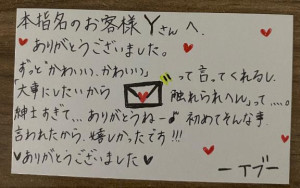 本指名のお客様Yさんへ
♥ありがとうございました。
ずっと"かわいい、かわいい"って言ってくれるし
「大事にしたいから触れられへん」って....。
紳士すぎて...ありがとうねー♪初めてそんな事
言われたから、嬉しかったです!!!
♥ありがとうございました♥
ーイブー